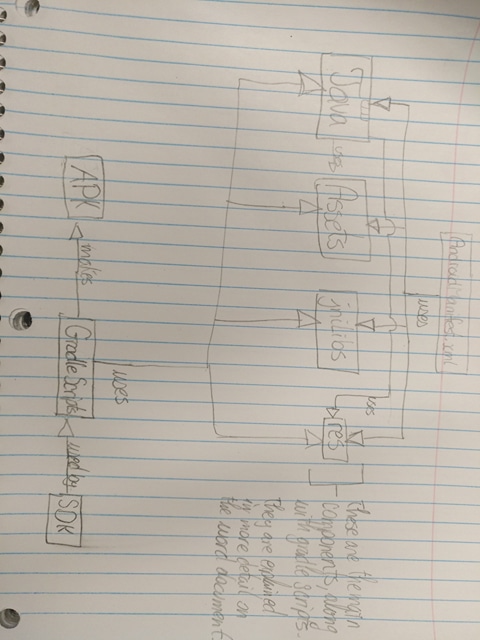 AndroidManifest.xml
uses
Java
uses
Assets
jniLibs
uses
res
These are the main
components, along
with gradle scripts.
They are explained
in more detail on
the word document.
uses
APK
makes
Gradle Scripts
used by
SDK